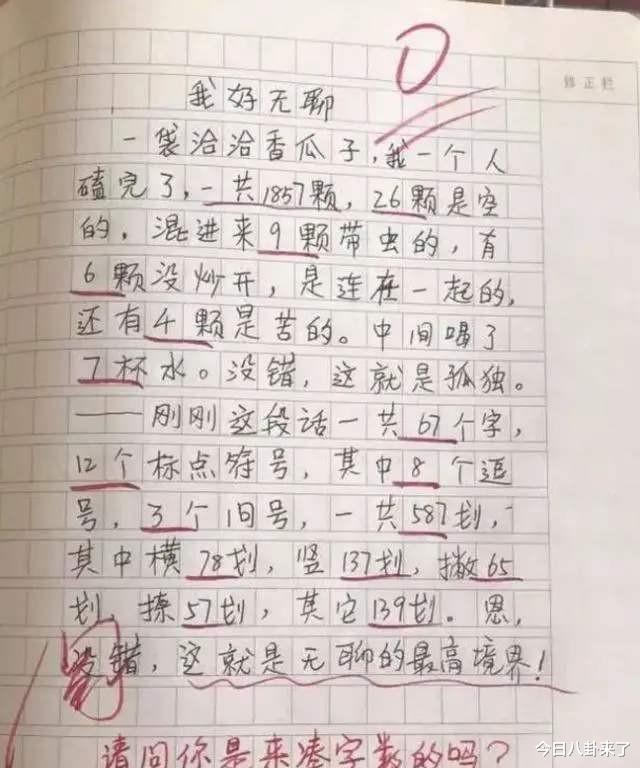 0
修正栏
我好无聊
一袋洽洽香瓜子,我一个人
磕完了,一共1857颗,26颗是空
的,混进来9颗带虫的,有
6颗没炒开,是连在一起的,
还有4颗是苦的。中间喝了
7杯水。没错,这就是孤独。
——刚刚这段话一共67个字,
12个标点符号,其中8个逗
号,3个问号,一共587划,
其中横78划,竖137划,撇65
划,捺57划,其它139划。恩,
没错,这就是无聊的最高境界!
请问你是来凑字数的吗?
今日八卦来了